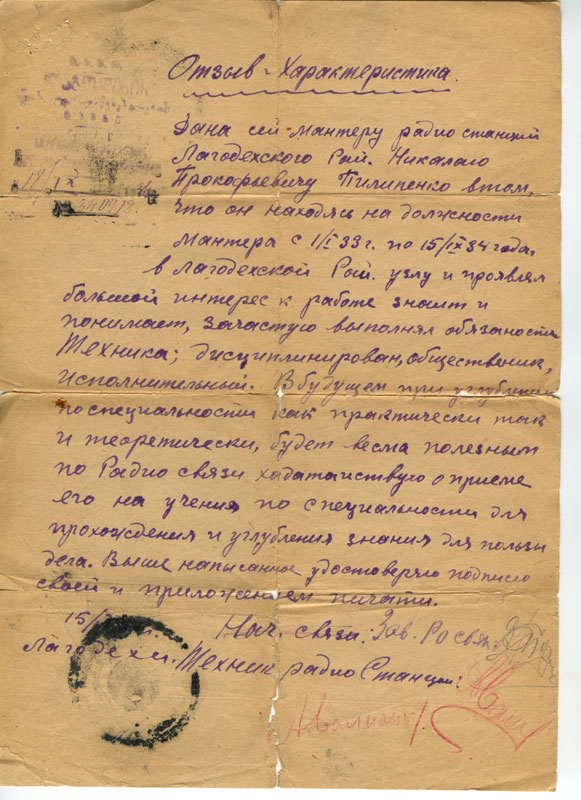 Отзыв-Характеристика.
Дана сей мантеру радио станций
Лагодехского Рай. Николаю
Прокофьевичу Пилипенко в том,
что он находясь на должности
мантера с 1/I 33 г. по 15/IX 34 года,
в Лагодехской Рай. узлу и проявлял
большой интерес к работе знает и
понимает, зачастую выполнял обязаности
Техника; дисциплинирован, общественик,
исполнительный. В будущем при углублении
по специальности как практически так
и теоретически, будет весма полезным
по Радио связи хадатайствую о приеме
его на учения по специальности для
прохождения и углубления знания для пользы
дела. Выше написанное удостоверяю подписю
своей и приложением печати.
15/
Нач. связи: Зав.
Лагодехи. Техник радио Станции: